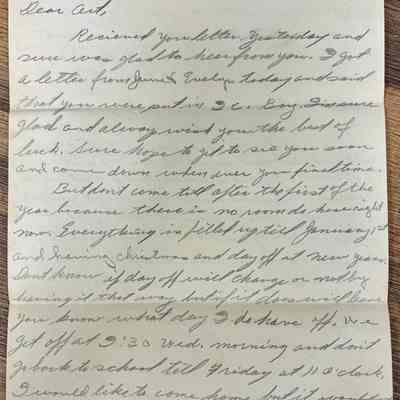 Dear Art,
Recieved you letter yesterday and
sure was glad to hear from you. I got
a letter from Jim & Evelyn today and said
that you were put in 3 C. Boy I'm sure
glad and always wish you the best of
luck. Sure hope to get to see you soon
and come down when ever you find time.
But don't come till after the first of the
year because there is no rooms to have right
now. Everything is filled up till January 1st
and having christmas and day off at new years.
Dont know if day off will change or not by
having it that way but if it does will have
you know what day I do have off. We
get off at 9:30 Wed. morning and don't
go back to school till Friday at 11 o'clock.
I would like to come home but it would